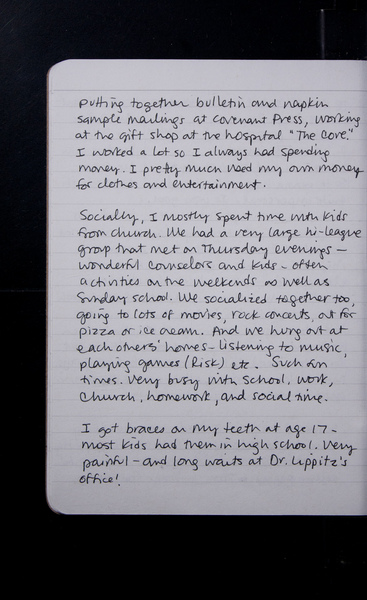 putting together bulletin and napkin
sample mailings at Covenant Press, working
at the gift shop at the hospital "The Core."
I worked a lot so I always had spending
money. I pretty much used my own money
for clothes and entertainment.
Socially, I mostly spent time with kids
from church. We had a very large hi-league
group that met on Thursday evenings -
wonderful counselors and kids - often
activities on the weekends as well as
Sunday school. We socialized together too,
going to lots of movies, rock concerts, out for
pizza or ice cream. And we hung out at
each others' homes - listening to music,
playing games (Risk) etc. Such fun
times. Very busy with school, work,
church, homework, and social time.
I got braces on my teeth at age 17 -
most kids had them in high school. Very
painful - and long waits at Dr. Lippitz's
office!